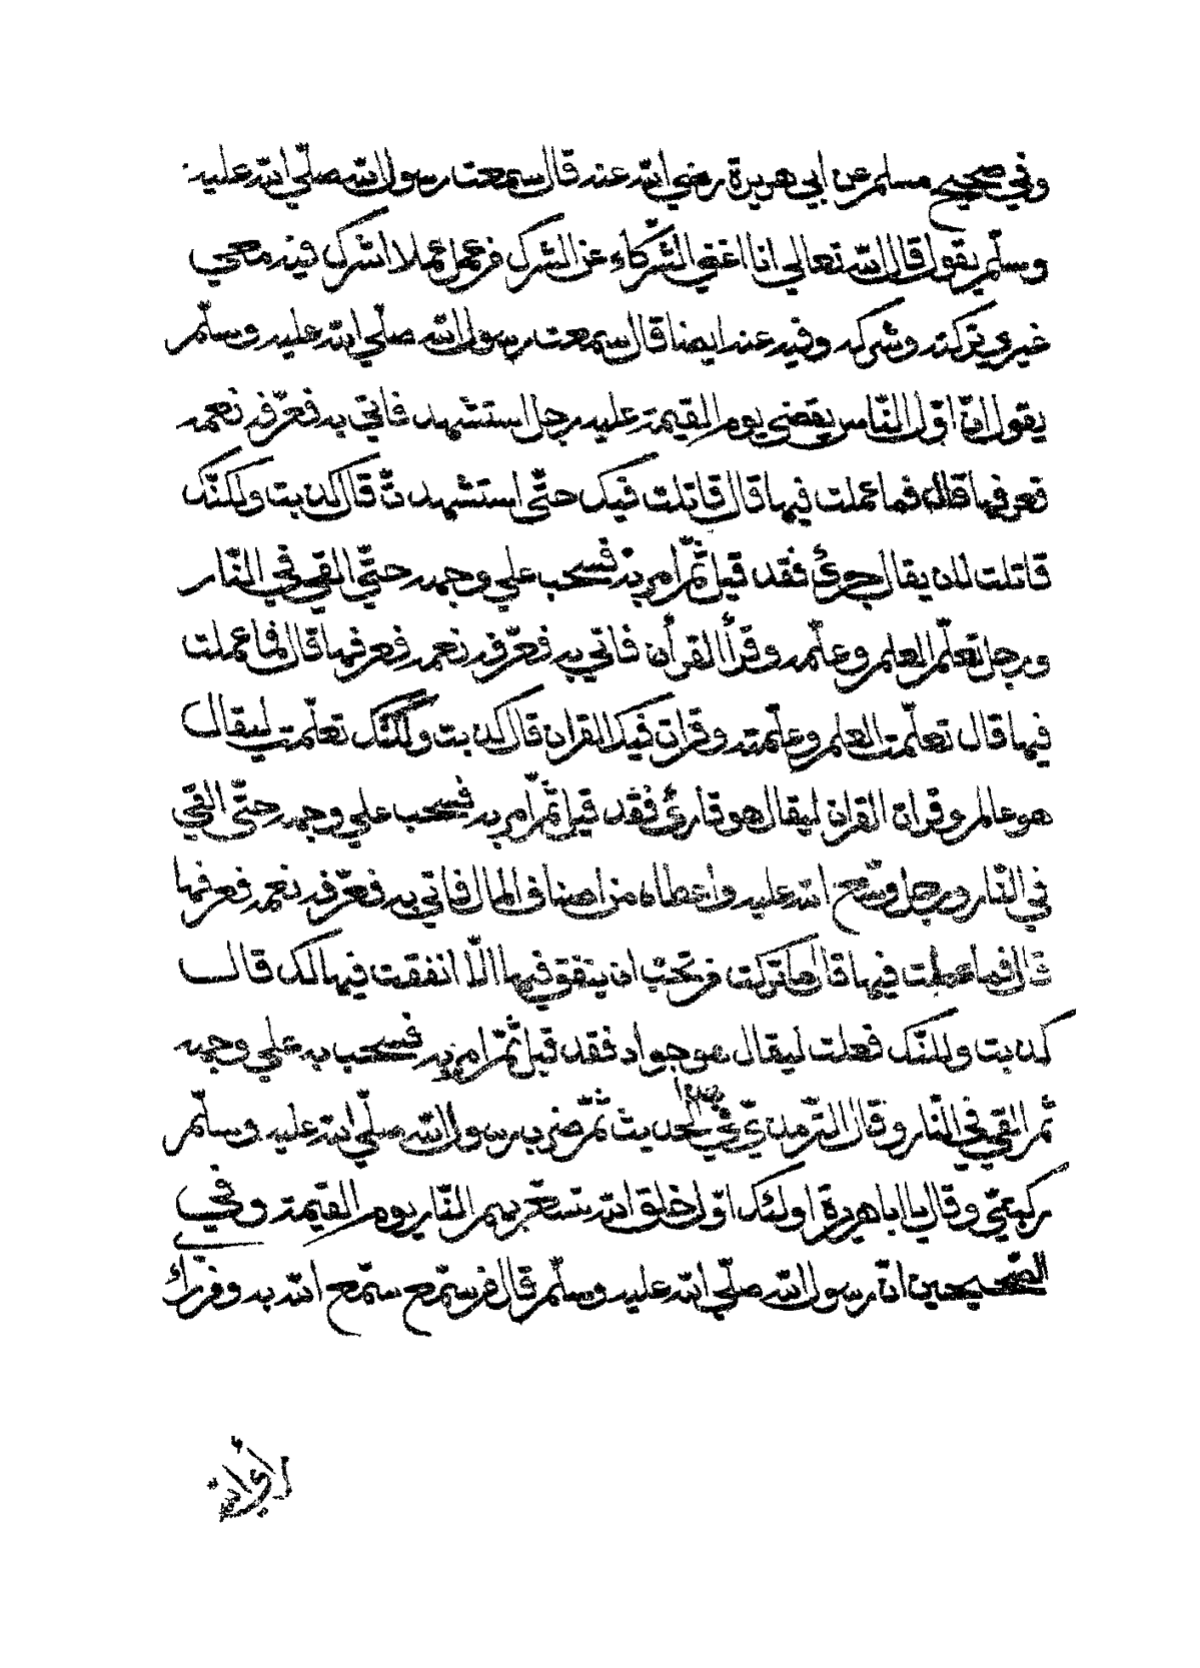 وفي صحيح مسلم عن ابي هريرة رضي الله عنه قال سمعت رسول الله صلّي الله عليه
وسلّم يقول قال الله تعالي انا اغني الشّركاء عن الشرك فمن عمل عملا اشرك فيه معي
غيري تركته وشركه وفيه عنه ايضا قال سمعت رسول الله صلّي الله عليه وسلّم
يقول انّ اوّل النّاس يقضي يوم القيمة عليه رجل استشهد فاتي به فعرّفه نعمه
فعرفها قال فما عملت فيها قال قاتلت فيك حتّي استشهدتّ قال كذبت ولكنّك
قاتلت لان يقال جرئ فقد قيل ثمّ امر به فسحب علي وجهه حتّي القي في النّار
ورجل تعلّم العلم وعلّمه وقرأ القرأن فاتي به فعرّفه نعمه فعرفها قال فما عملت
فيها قال تعلّمت العلم وعلّمته وقرات فيك القران قال كذبت ولكنّك تعلّمت ليقال
هو عالم وقرات القران ليقال هو قارئ فقد قيل ثمّ امر به فسحب علي وجهه حتّي القي
في النّار ورجل وسّع الله عليه واعطاه من اصناف المال فاتي به فعرّفه نعمه فعرفها
قال فما عملت فيها قال ما تركت من تحبّ ان ينفق فيها الّا انفقت فيها لك قال
كذبت ولكنّك فعلت ليقال هو جواد فقد قيل ثمّ امر به فسحب به علي وجهه
ثمّ القي في النّار وقال التّرمذيّ في الحديث ثمّ ضرب رسول الله صلّي الله عليه وسلّم
ركبتيّ وقال يا ابا هريرة اولئك اوّل خلق الله تسعّر بهم النّار يوم القيمة وفي
الصّحيحين انّ رسول الله صلّي الله عليه وسلّم قال من سمّع سمّع الله به ومن راءٰ